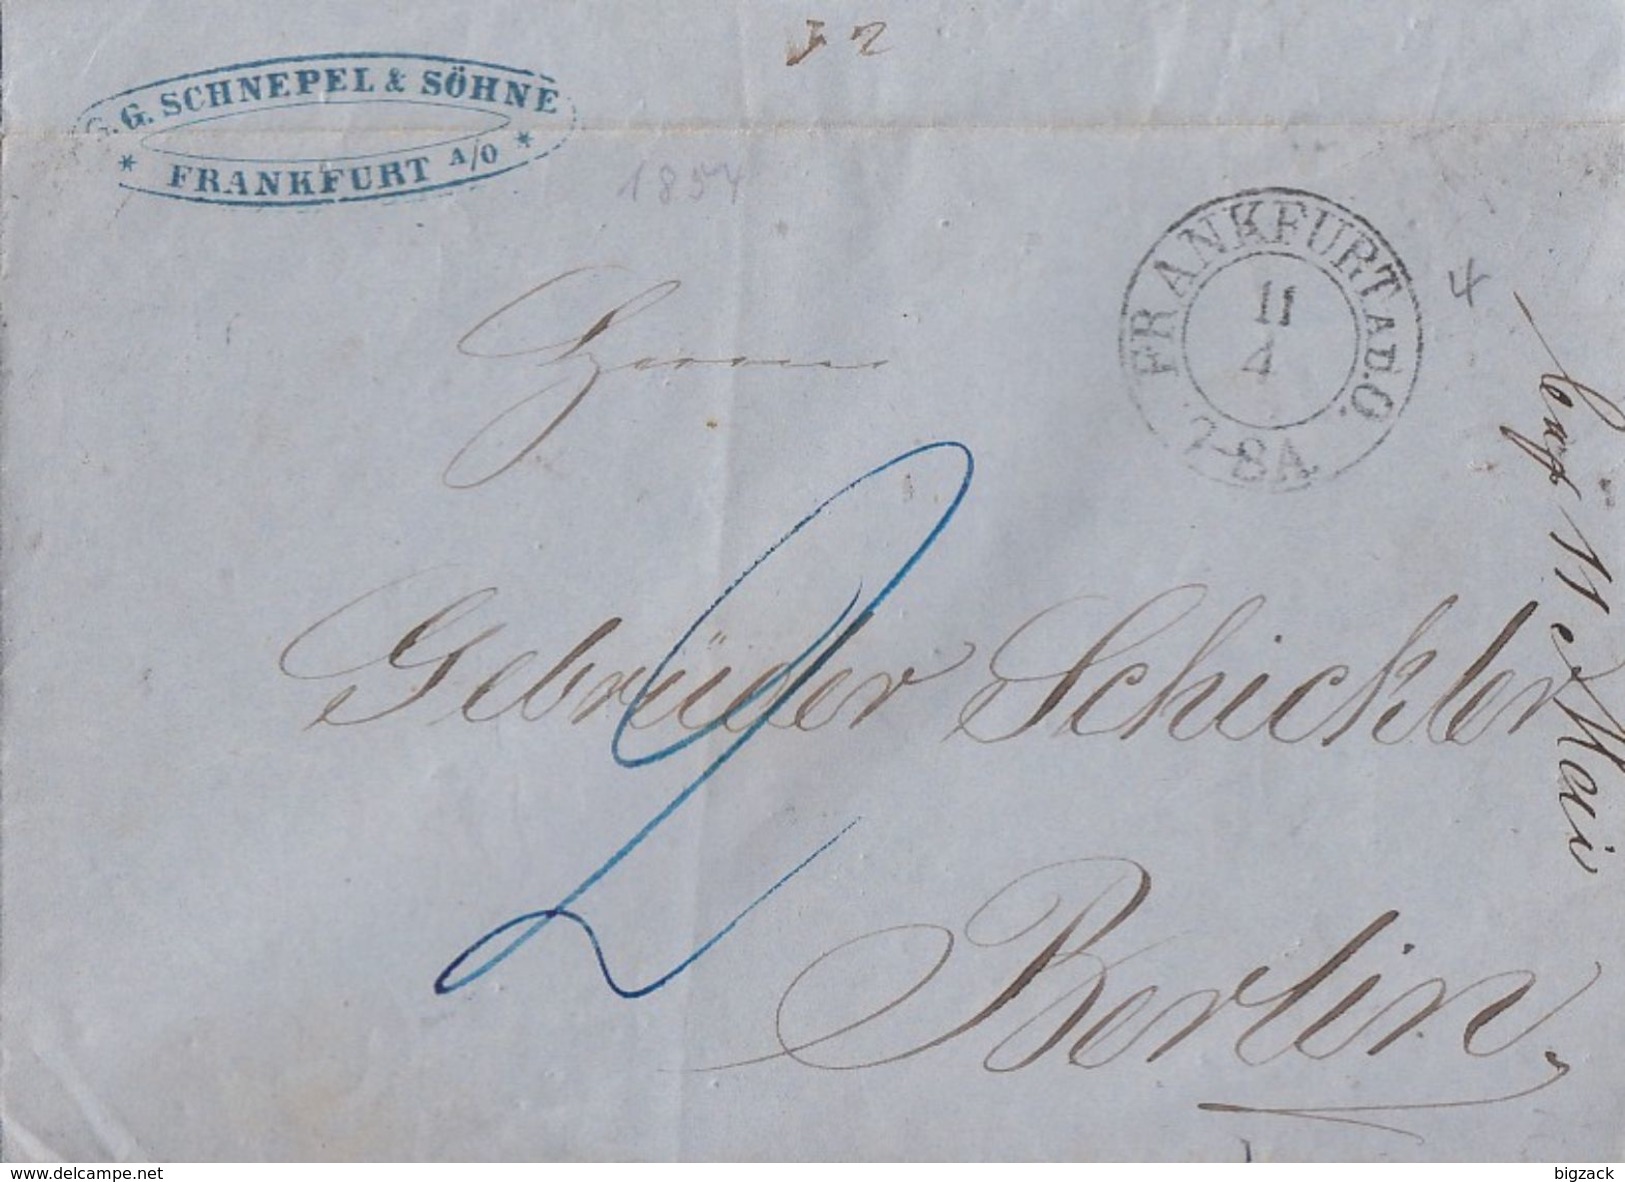 G. G. SCHNEPEL & SÖHNE
* FRANKFURT A/O *
1854
FRANKFURT A.D.O.
11
4
7-8A.
4
Herren
2
Gebrüder Schickler
Berlin
11 Mai
www.delcampe.net
bigzack